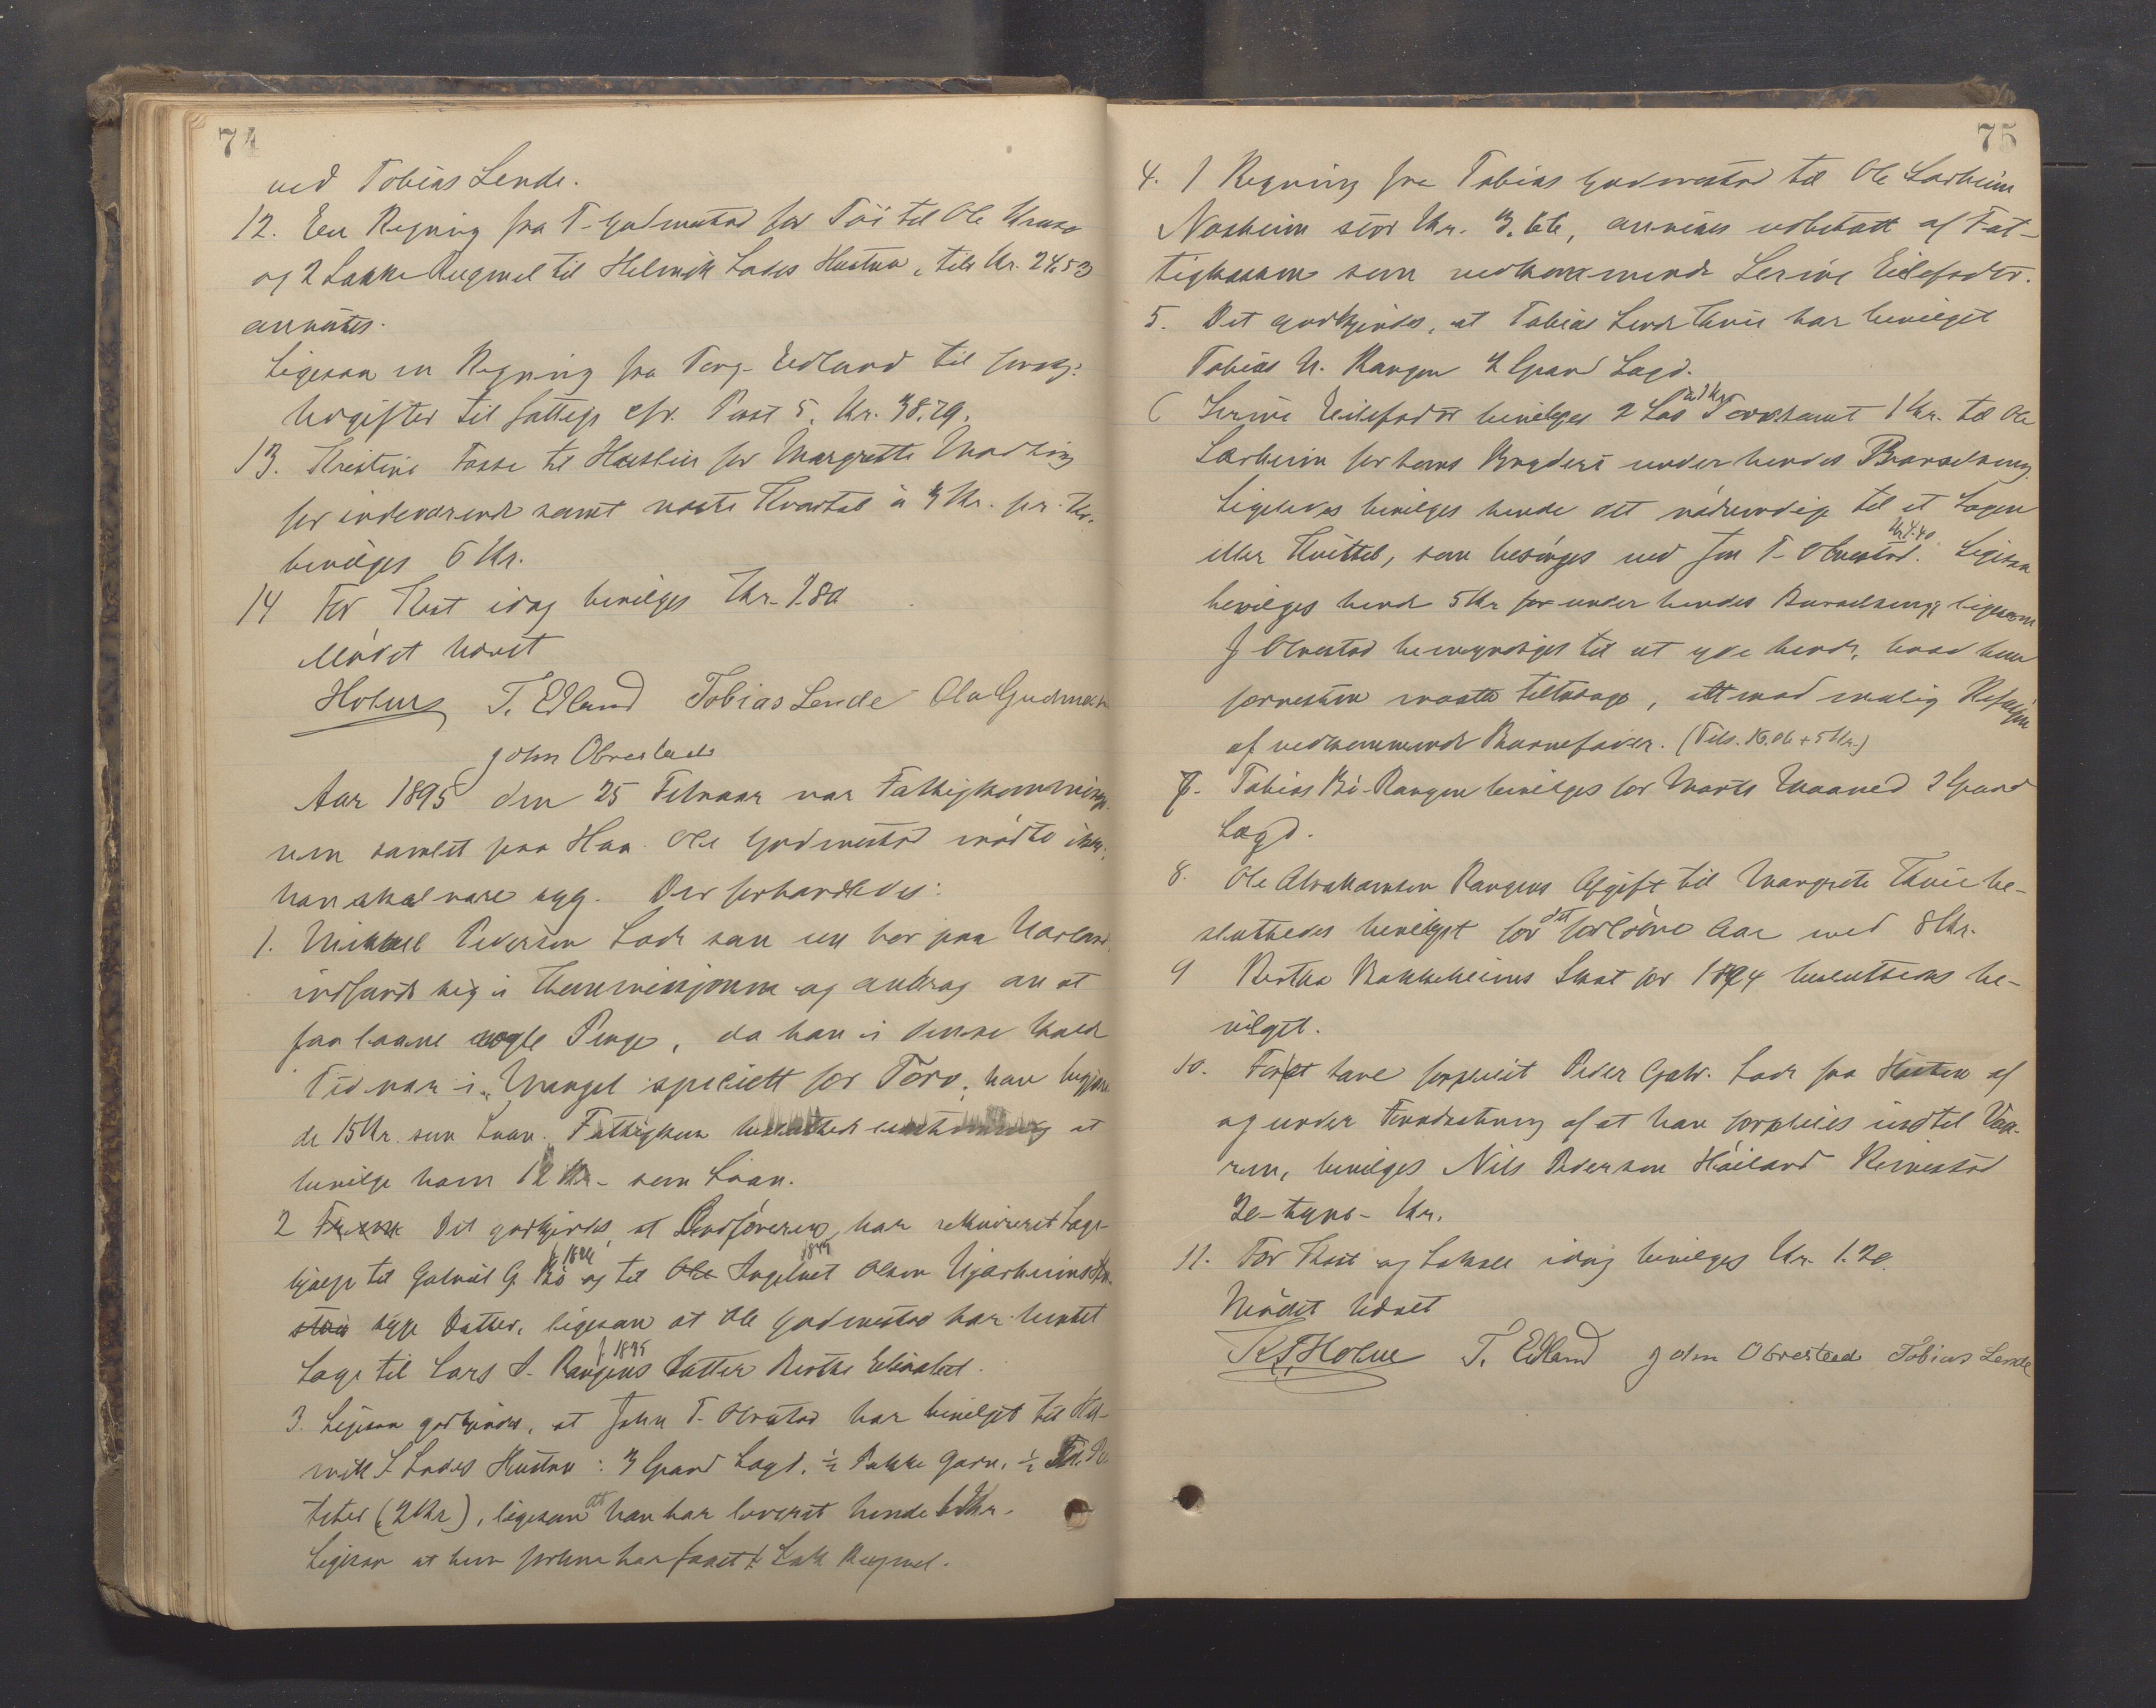 74
ved Tobias Lende.
12. En Regning fra T. Gudmestad for Töi til Ole
og 2 Sække Rugmel til Helmik Lodes Hustru, tils Kr. 24.53
anvistes.
Ligesaa en Regning fra Torg. Edland til forskj.
Udgifter til fattige cfr. Post 5. Kr. 38.79.
13. Kristine Fosse til Husleie for Margrethe
for indeværende samt næste Kvartal à 3 Kr. pr. Kv.
bevilges 6 Kr.
14 For Kost idag bevilges Kr. 1.80
Mödet hævet
Holum T. Edland Tobias Lende Ola Gudmestad
John Obrestad
Aar 1895 den 25 Februar var Fattigkommisjo-
nen samlet paa Haa. Ole Gudmestad mödte ikke;
han skal være syg. Der forhandledes:
1. Mikkel Pederson Lode som nu bor paa Varland
indfandt sig i Kommisjonen og androg om at
faa laane nogle Penge, da han i denne kolde
Tid var i Mangel specielt for Torv; han begjær-
de 15 Kr. som Laan. Fattigkom. besluttede at
bevilge ham 12 Kr. som Laan.
2 Det godkjendes, at Ordföreren har rekvireret Læge-
hjælp til Gabriel G. Bö f. 1824 og til Ole Ingebret Olsen Njærheims 1849
syge Datter, ligesaa at Ole Gudmestad har hentet
Læge til Lars S. Rangens Datter Berthe Elisabet. f. 1895
3. Ligesaa godkjendes, at John T. Obrestad har bevilget til Hel-
mik S. Lodes Hustru: 3 Spand Lagd, ½ Pakke Garn, ½ Td. Po-
teter (2 Kr), ligesom at han har leveret hende 6 Kr.
Ligesaa at hun forhen har faaet 1 Sæk Rugmel.
75
4. 1 Regning fra Tobias Gudmestad til Ole Lorheim
Nærheim stor Kr. 3.66, anvises udbetalt af Fat-
tigkassen som vedkommende Serine Eilefsdtr.
5. Det godkjendes, at Tobias Lende Thuie har bevilget
Tobias N. Rangen 4 Spand Lagd.
6 Serine Eilefsdtr bevilges 2 Læs Torv samt 1 Kr. til Ole
Lorheim for hans Bryderi under hendes Barselseng
Ligeledes bevilges hende det nödvendige til et Lagen
eller Kvittel, som besörges ved Jon T. Obrestad. Kr. 4.40 Ligesaa
bevilges hende 5 Kr for under hendes Barselseng; ligesom
J Obrestad bemyndiges til at yde hende, hvad hun
forresten maatte tiltrænge, alt mod mulig Refusjon
af vedkommende Barnefader. (Tils. 16.06 + 5 Kr.)
7. Tobias Bö-Rangen bevilges for Marts Maaned 2 Spand
Lagd.
8. Ole Abrahamsen Rangens Afgift til Margrete Thuie be-
sluttedes bevilget for det forlöbne Aar med 8 Kr.
9 Bertha Bakkeheims Skat for 1894 besluttedes be-
vilget.
10. For at have forpleiet Peder Gabr. Lode fra Hösten af
og under Forudsætning af at han forpleies indtil Vaa-
ren, bevilges Nils Pederson Höiland Reimestad
20 - tyve - Kr.
11. For Kost og Lokale idag bevilges Kr. 1.20.
Mödet hævet
Holum T. Edland John Obrestad Tobias Lende